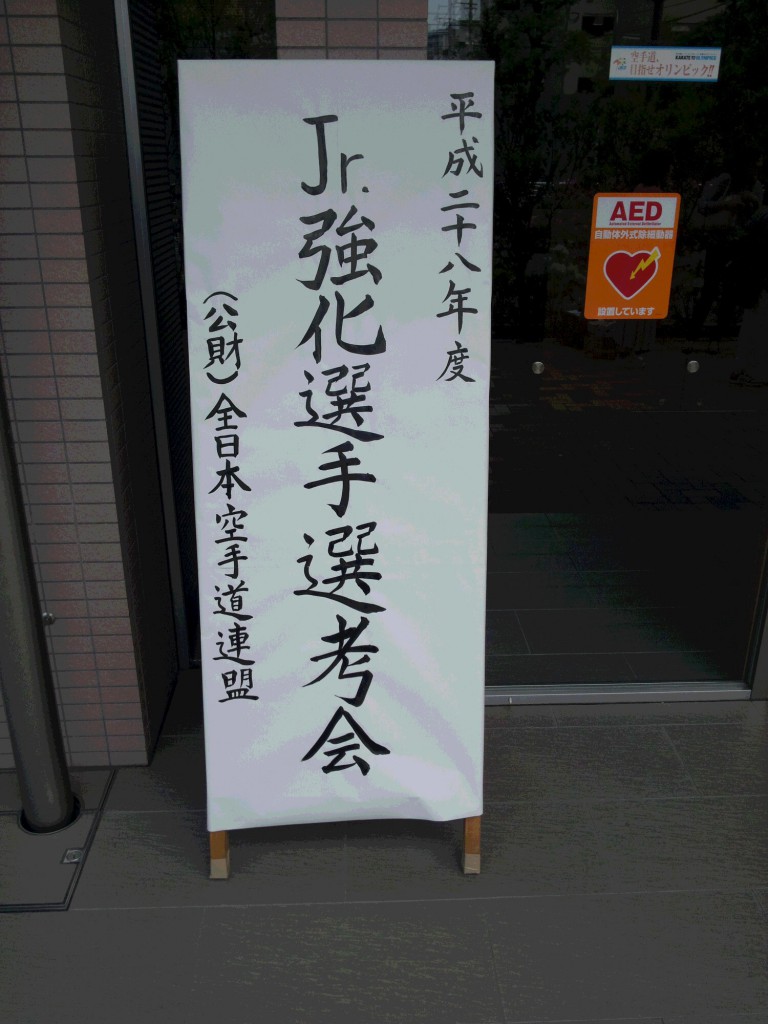 平成二十八年度
Jr.強化選手選考会
（公財）全日本空手道連盟
空手道、
目指せオリンピック!!
AED
自動体外式除細動器
設置しています